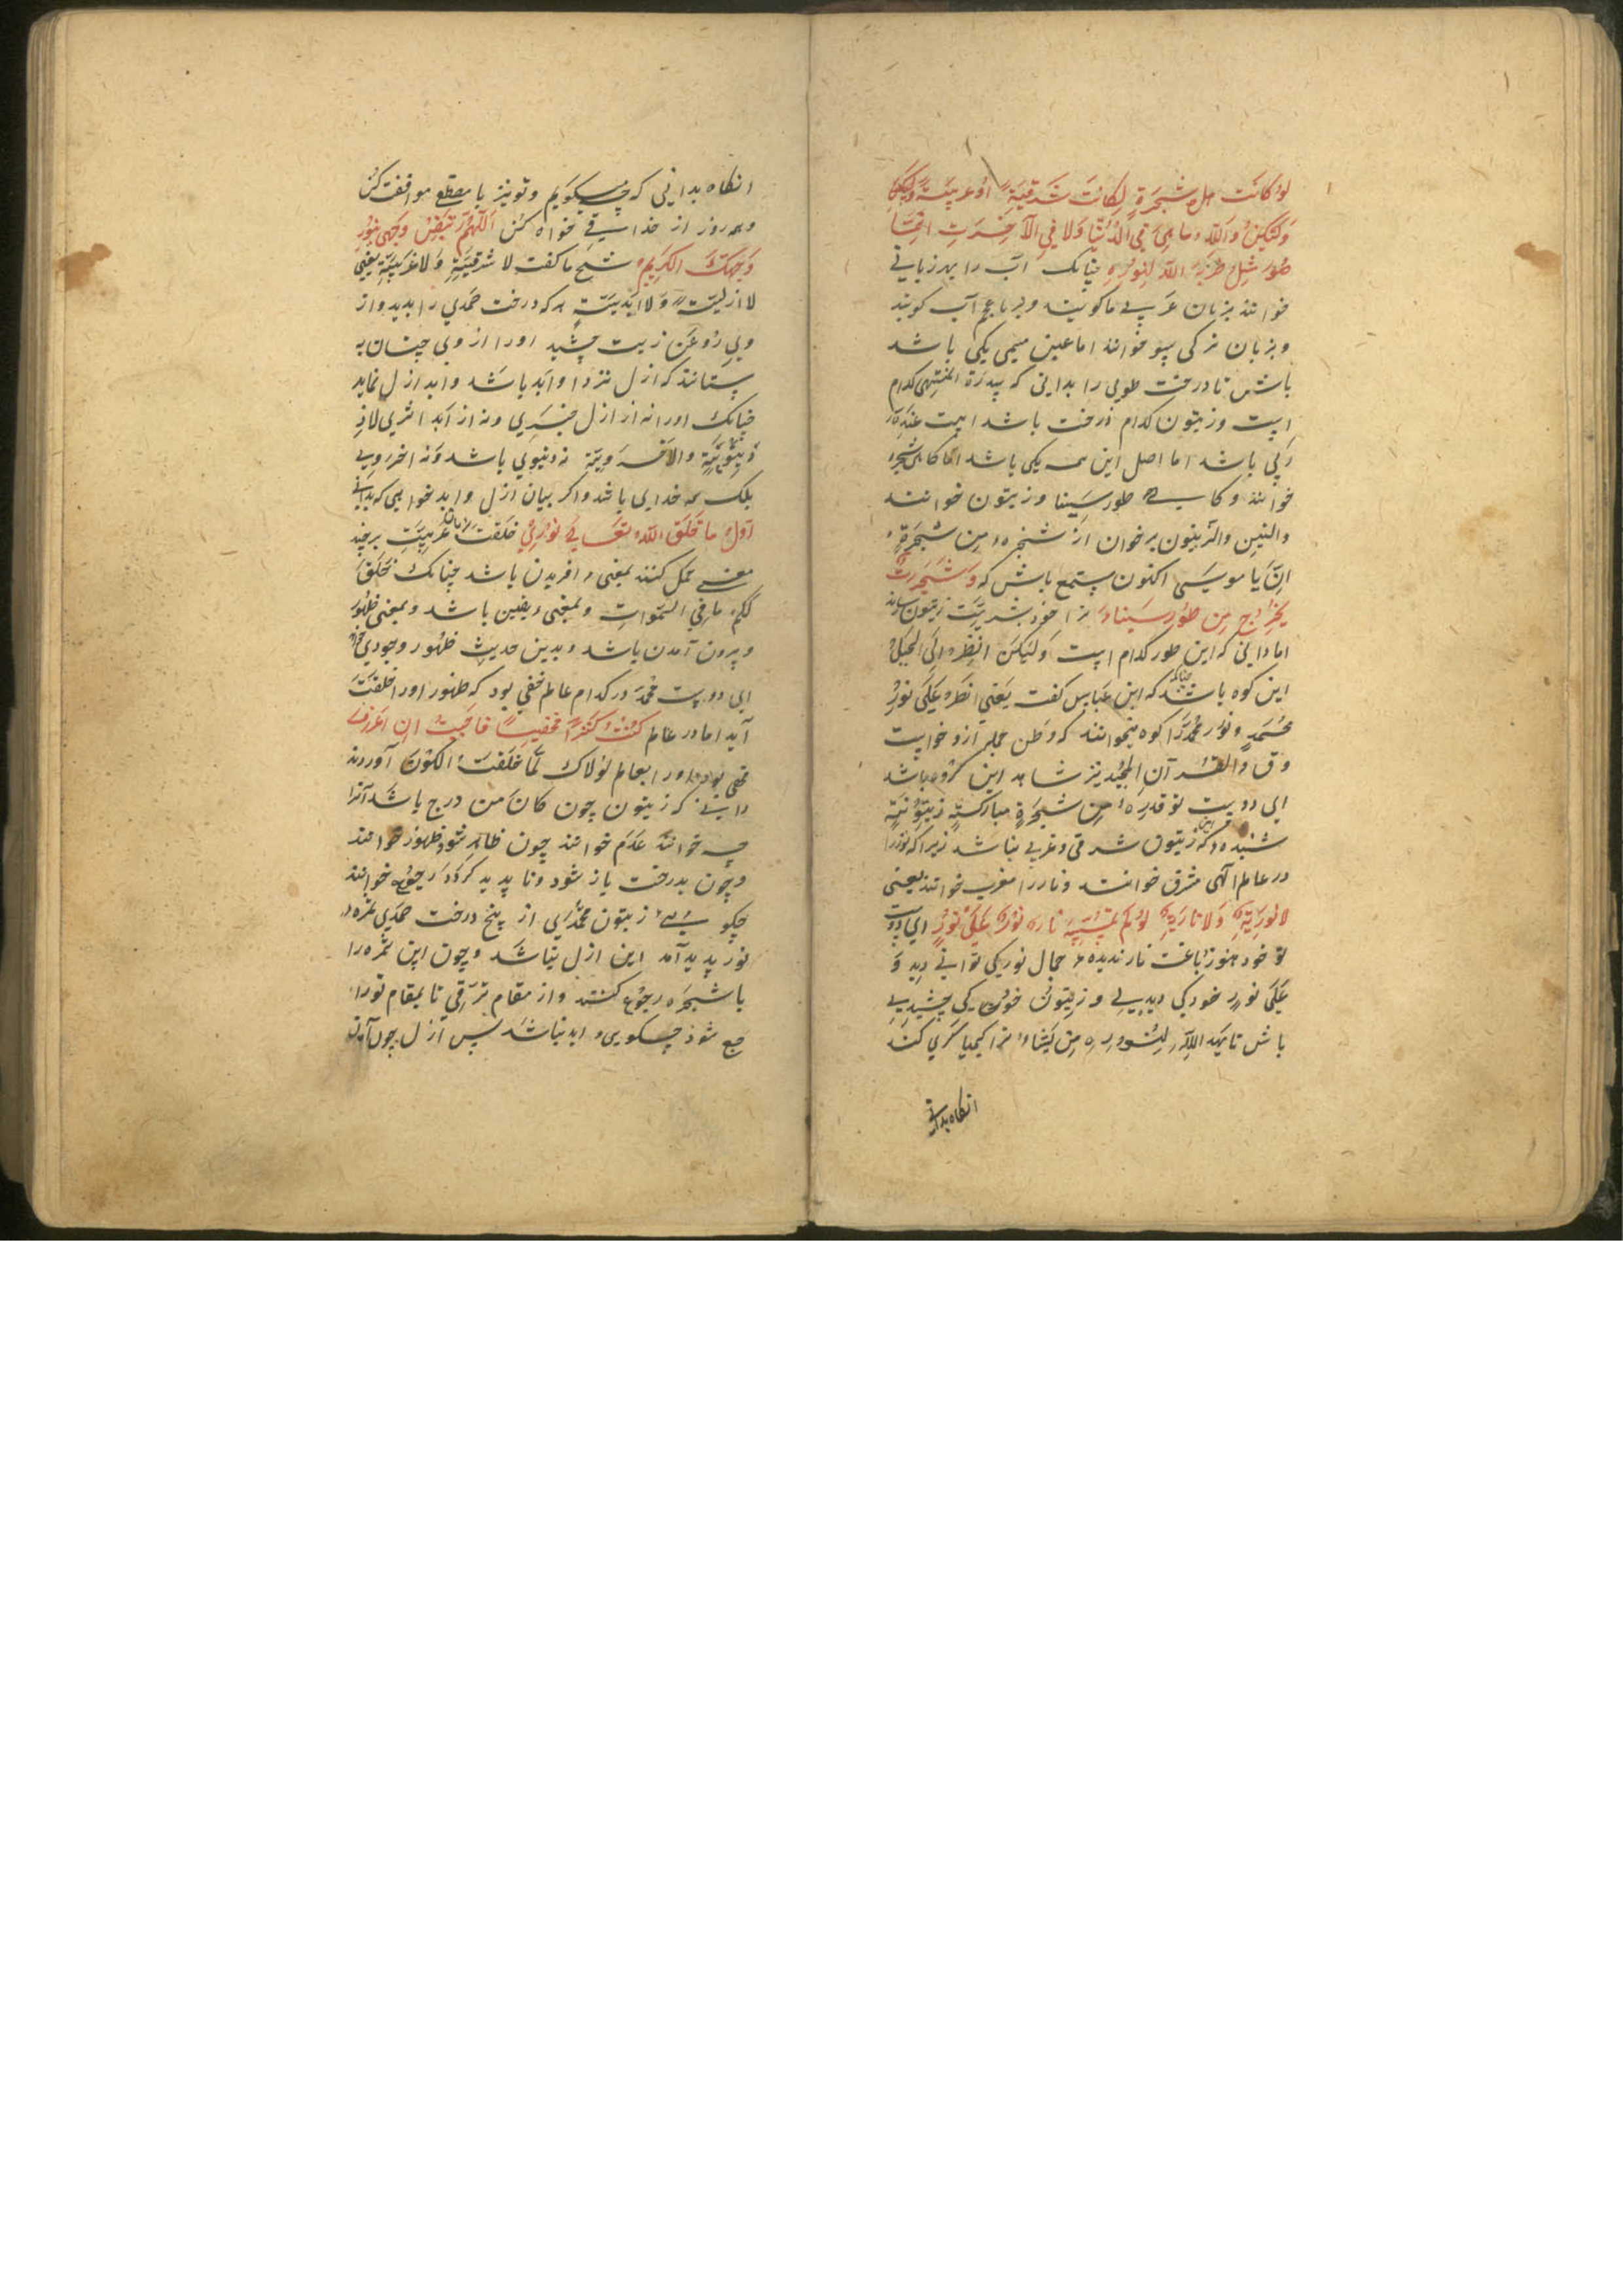 لو كانت هل شجرة لكانت شرقية او غربية ولكن
ولكن والله ما هي في الدنيا ولا في الآخرت انما
هو مثل ضربه الله لنوره چنانک آب را بهر زبانی
خوانند بزبان عربی ما گویند و بر با عجم آب گویند
و بزبان ترکی سو خوانند اما عین مسمی یکی باشد
باش تا درخت طوبی را بدانی که سدرة المنتهی کدام
است و زیتون کدام درخت باشد ابیت عند
ربی باشد اما اصل این همه یکی باشد اما گاهی شجره
خوانند و گاهی طور سینا و زیتون خوانند
والتین والزیتون برخوان از شجره من شجرة
ان یا موسی اکنون مستمع باش که و شجرت
یخرج من طور سیناء ترا خود بشریت زیتون
اما دانی که این طور کدام است ولکن انظر الی الجبل
این کوه باشد چنانکه که ابن عباس گفت یعنی انظر علی نور
محمد و نور محمد را کوه میخوانند که وطن جمله ازو خواست
و ق والقرآن المجید نیز شاهد این کوه باشد
ای دوست توقدره من شجرة مبارکة زیتونة
شنیده که این زیتون شرقی و غربی نباشد زیرا که نور را
در عالم الهی مشرق خوانند و نار را مغرب خوانند یعنی
لا نورية ولا نارية لو لم تمسسه نار نور علی نور ای دوست
تو خود هنوز باغت نار ندیده جمال نور کی توانی دید و
علی نور خود کی دیدی و زیتون خود کی چشیدی
باش تا یهد الله لنوره من یشاء ترا کیمیاگری کند
انکاه بدانی
انکاه بدانی که چه میگویم و تو نیز با مقطع موافقت کن
و هر روز از خدا می خواه کن اللهم تبیض وجهی بنور
وجهک الکریم شیخ ما گفت لا شرقیة ولا غربیة یعنی
لا ازلیة ولا ابدیة هر که درخت احمدی را بدید و از
وی روغن زیت چشید او را از وی چنان به
ستانند که ازل نزد او ابد باشد و ابد ازل نماید
چنانک او را نه از ازل خبری و نه از ابد اثری لا
دنیویة والاخرویة نه دنیوی باشد و نه اخروی
بلک همه خدایی باشد و اگر بیان ازل و ابد خواهی که بدانی
اول ما خلق الله تعالی نوری خلقت بزبان عربیت بر چند
معنی حمل کنند بمعنی افریدن باشد چنانک خلق
لکم ما فی السموات و بمعنی دیقین باشد و بمعنی ظهور
و بیرون آمدن باشد و بدین حدیث ظهور وجودی
ای دوست محمد در کدام عالم مخفی بود که ظهور او را خلقت
آید اما در عالم کنت کنزا مخفیا فاحببت ان اعرف
مخفی بود او را بعالم لولاک لما خلقت الکون آوردند
دانی که زیتون چون کان من درج باشد آنرا
چه خوانند عدم خوانند چون ظاهر شود ظهور خوانند
و چون بدرخت باز شود و نا پدید گردد رجوع خوانند
چگویی زیتون محمدی از پنج درخت احمدی ثمره
نور پدید آمد این ازل نباشد و چون این ثمره را
با شجره رجوع کنند و از مقام ترقی تا بمقام نور
جمع شود چگویی ابد نباشد پس ازل چون آمدن